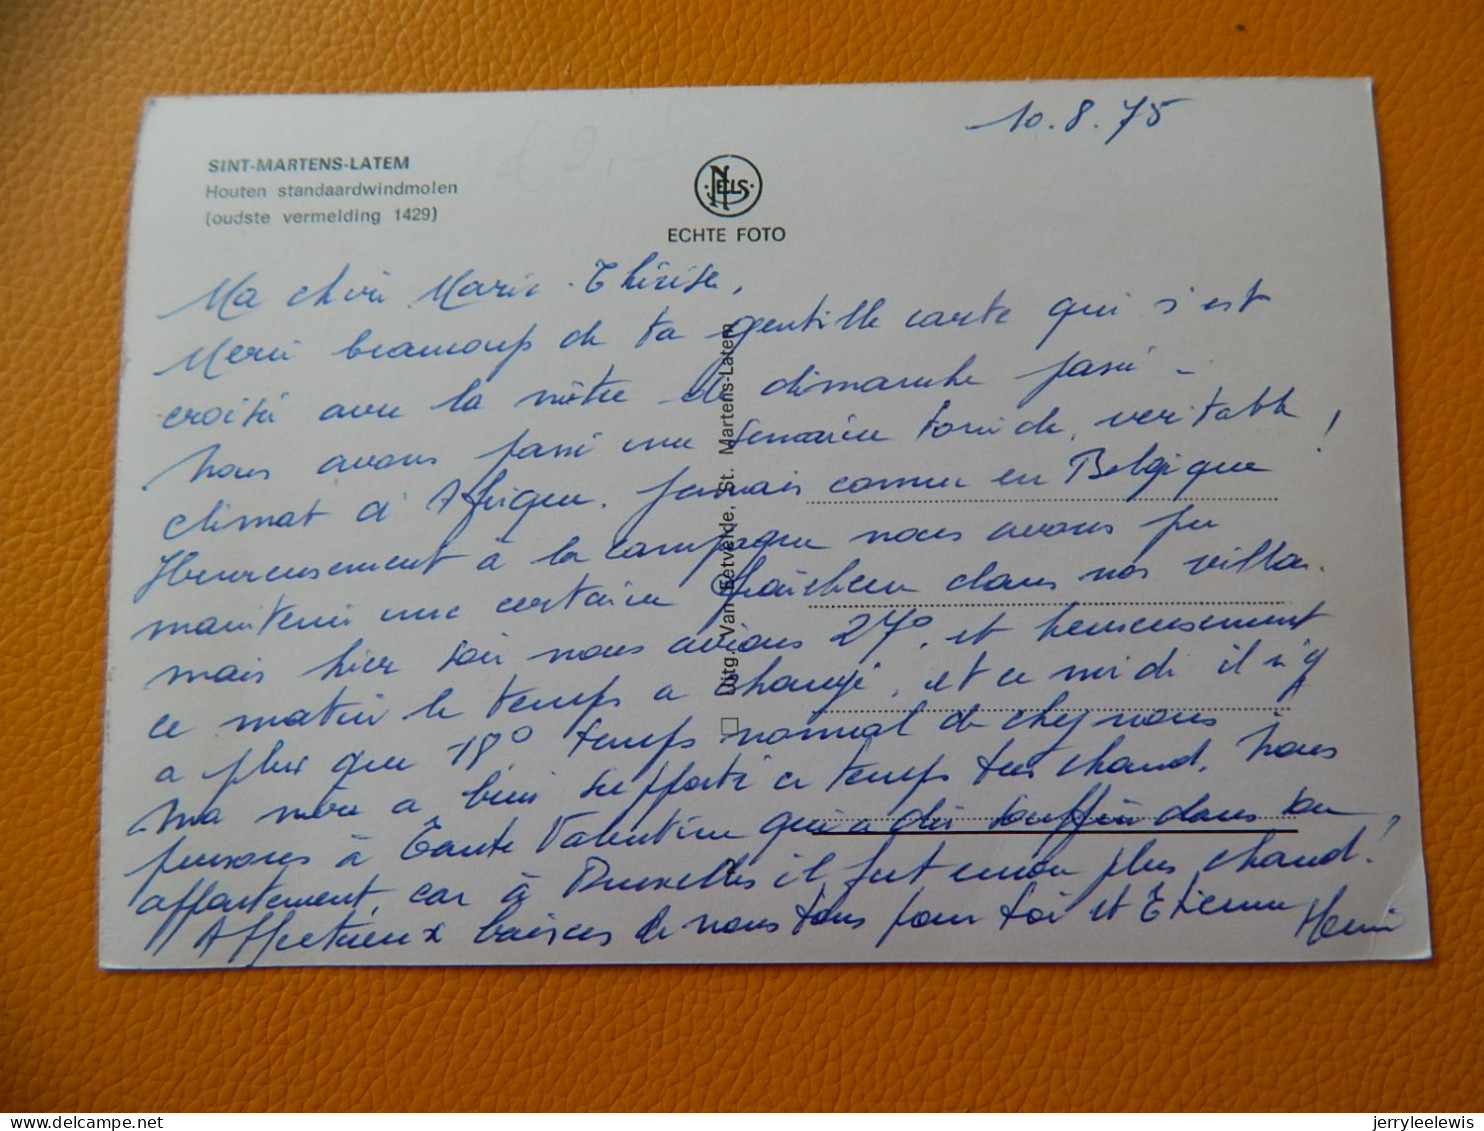 10.8.75
SINT-MARTENS-LATEM
Houten standaardwindmolen
(oudste vermelding 1429)
NELS
ECHTE FOTO
Ma chère Marie-Thérèse,
Merci beaucoup de ta gentille carte qui s'est
croisée avec la nôtre de dimanche passé -
Nous avons passé une semaine torride, veritable
climat d'Afrique. Jamais connu en Belgique !
Heureusement à la campagne nous avons pu
maintenir une certaine fraîcheur dans nos villas.
mais hier soir nous avions 27°, et heureusement
ce matin le temps a changé, et ce midi il n'y
a plus que 18° temps normal de chez nous
Ma mère a bien supporté ce temps très chaud. Nous
pensons à Tante Valentine qui a dû souffrir dans son
appartement, car à Bruxelles il fut encore plus chaud !
Affectueux baisers de nous tous pour toi et Etienne
Henri
Uitg. Van Eetvelde, St. Martens-Latem
jerryleelewis